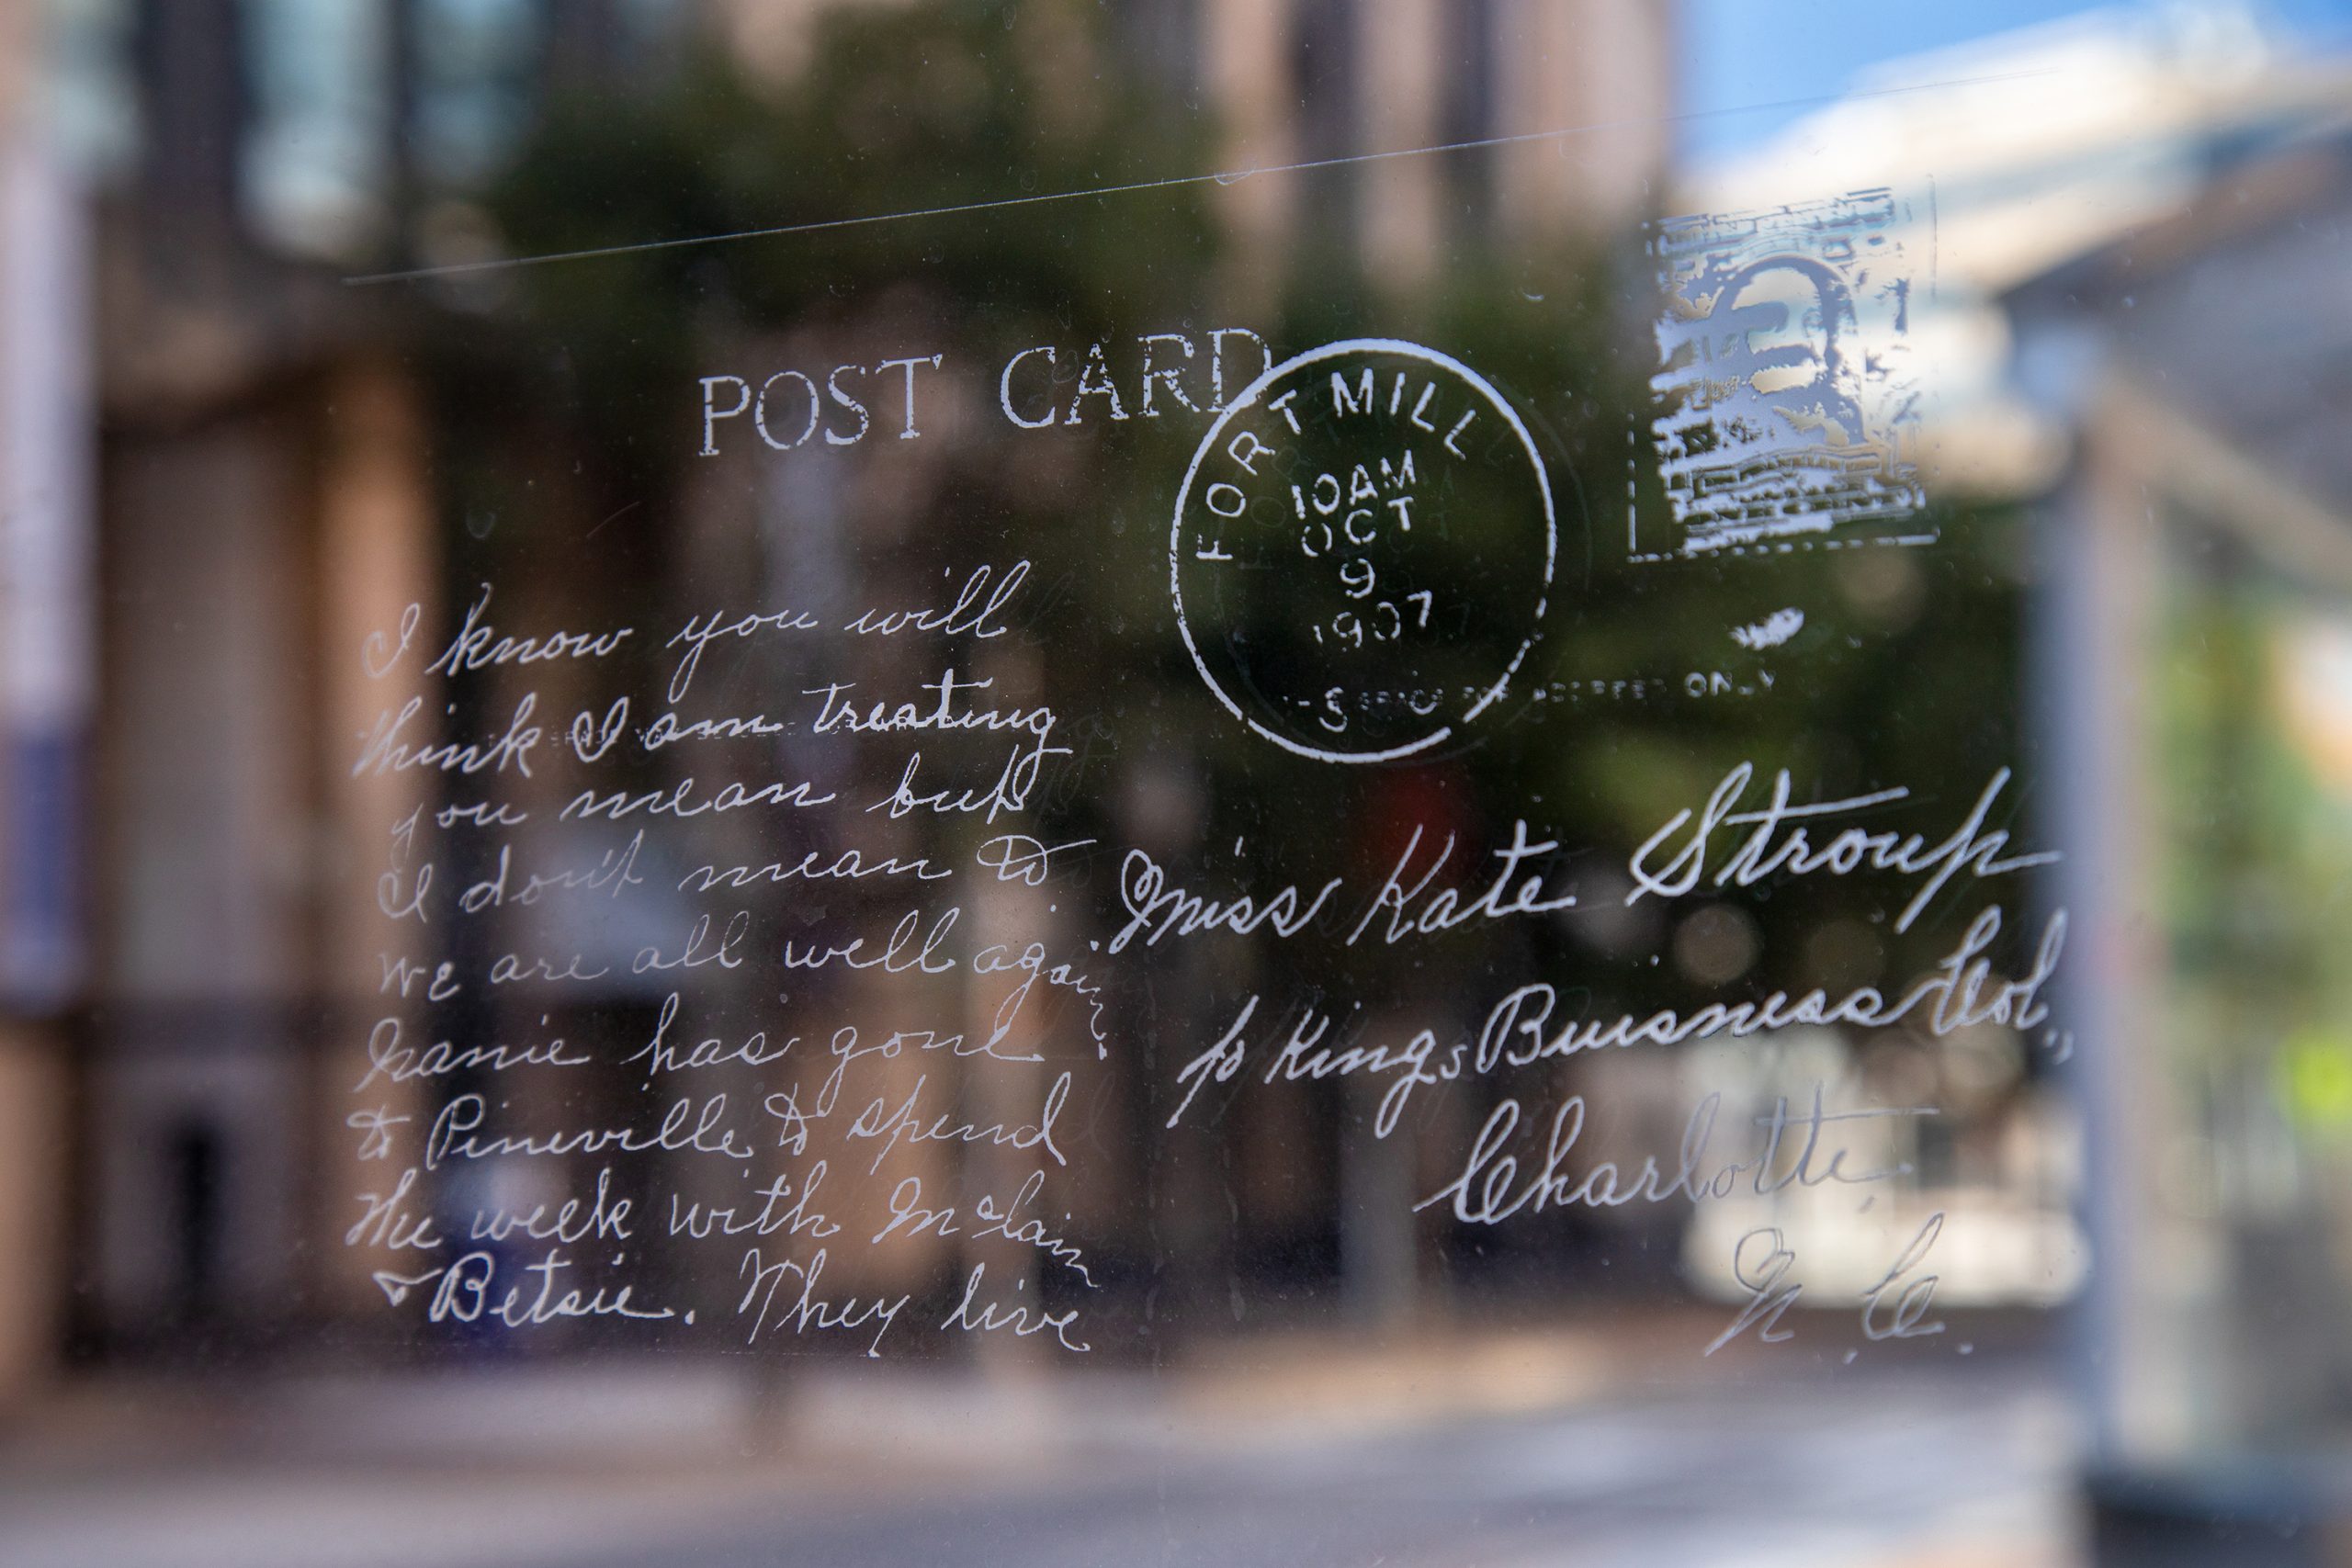 POST CARD
FORT MILL
10AM
OCT
9
1907
S C
ONLY
I know you will
think I am treating
you mean but
I don't mean to
we are all well again.
has gone
to Pineville to spend
the week with McLain
& Betsie. They live
Miss Kate Stroup
King's Buisness Col.,
Charlotte
N. C.